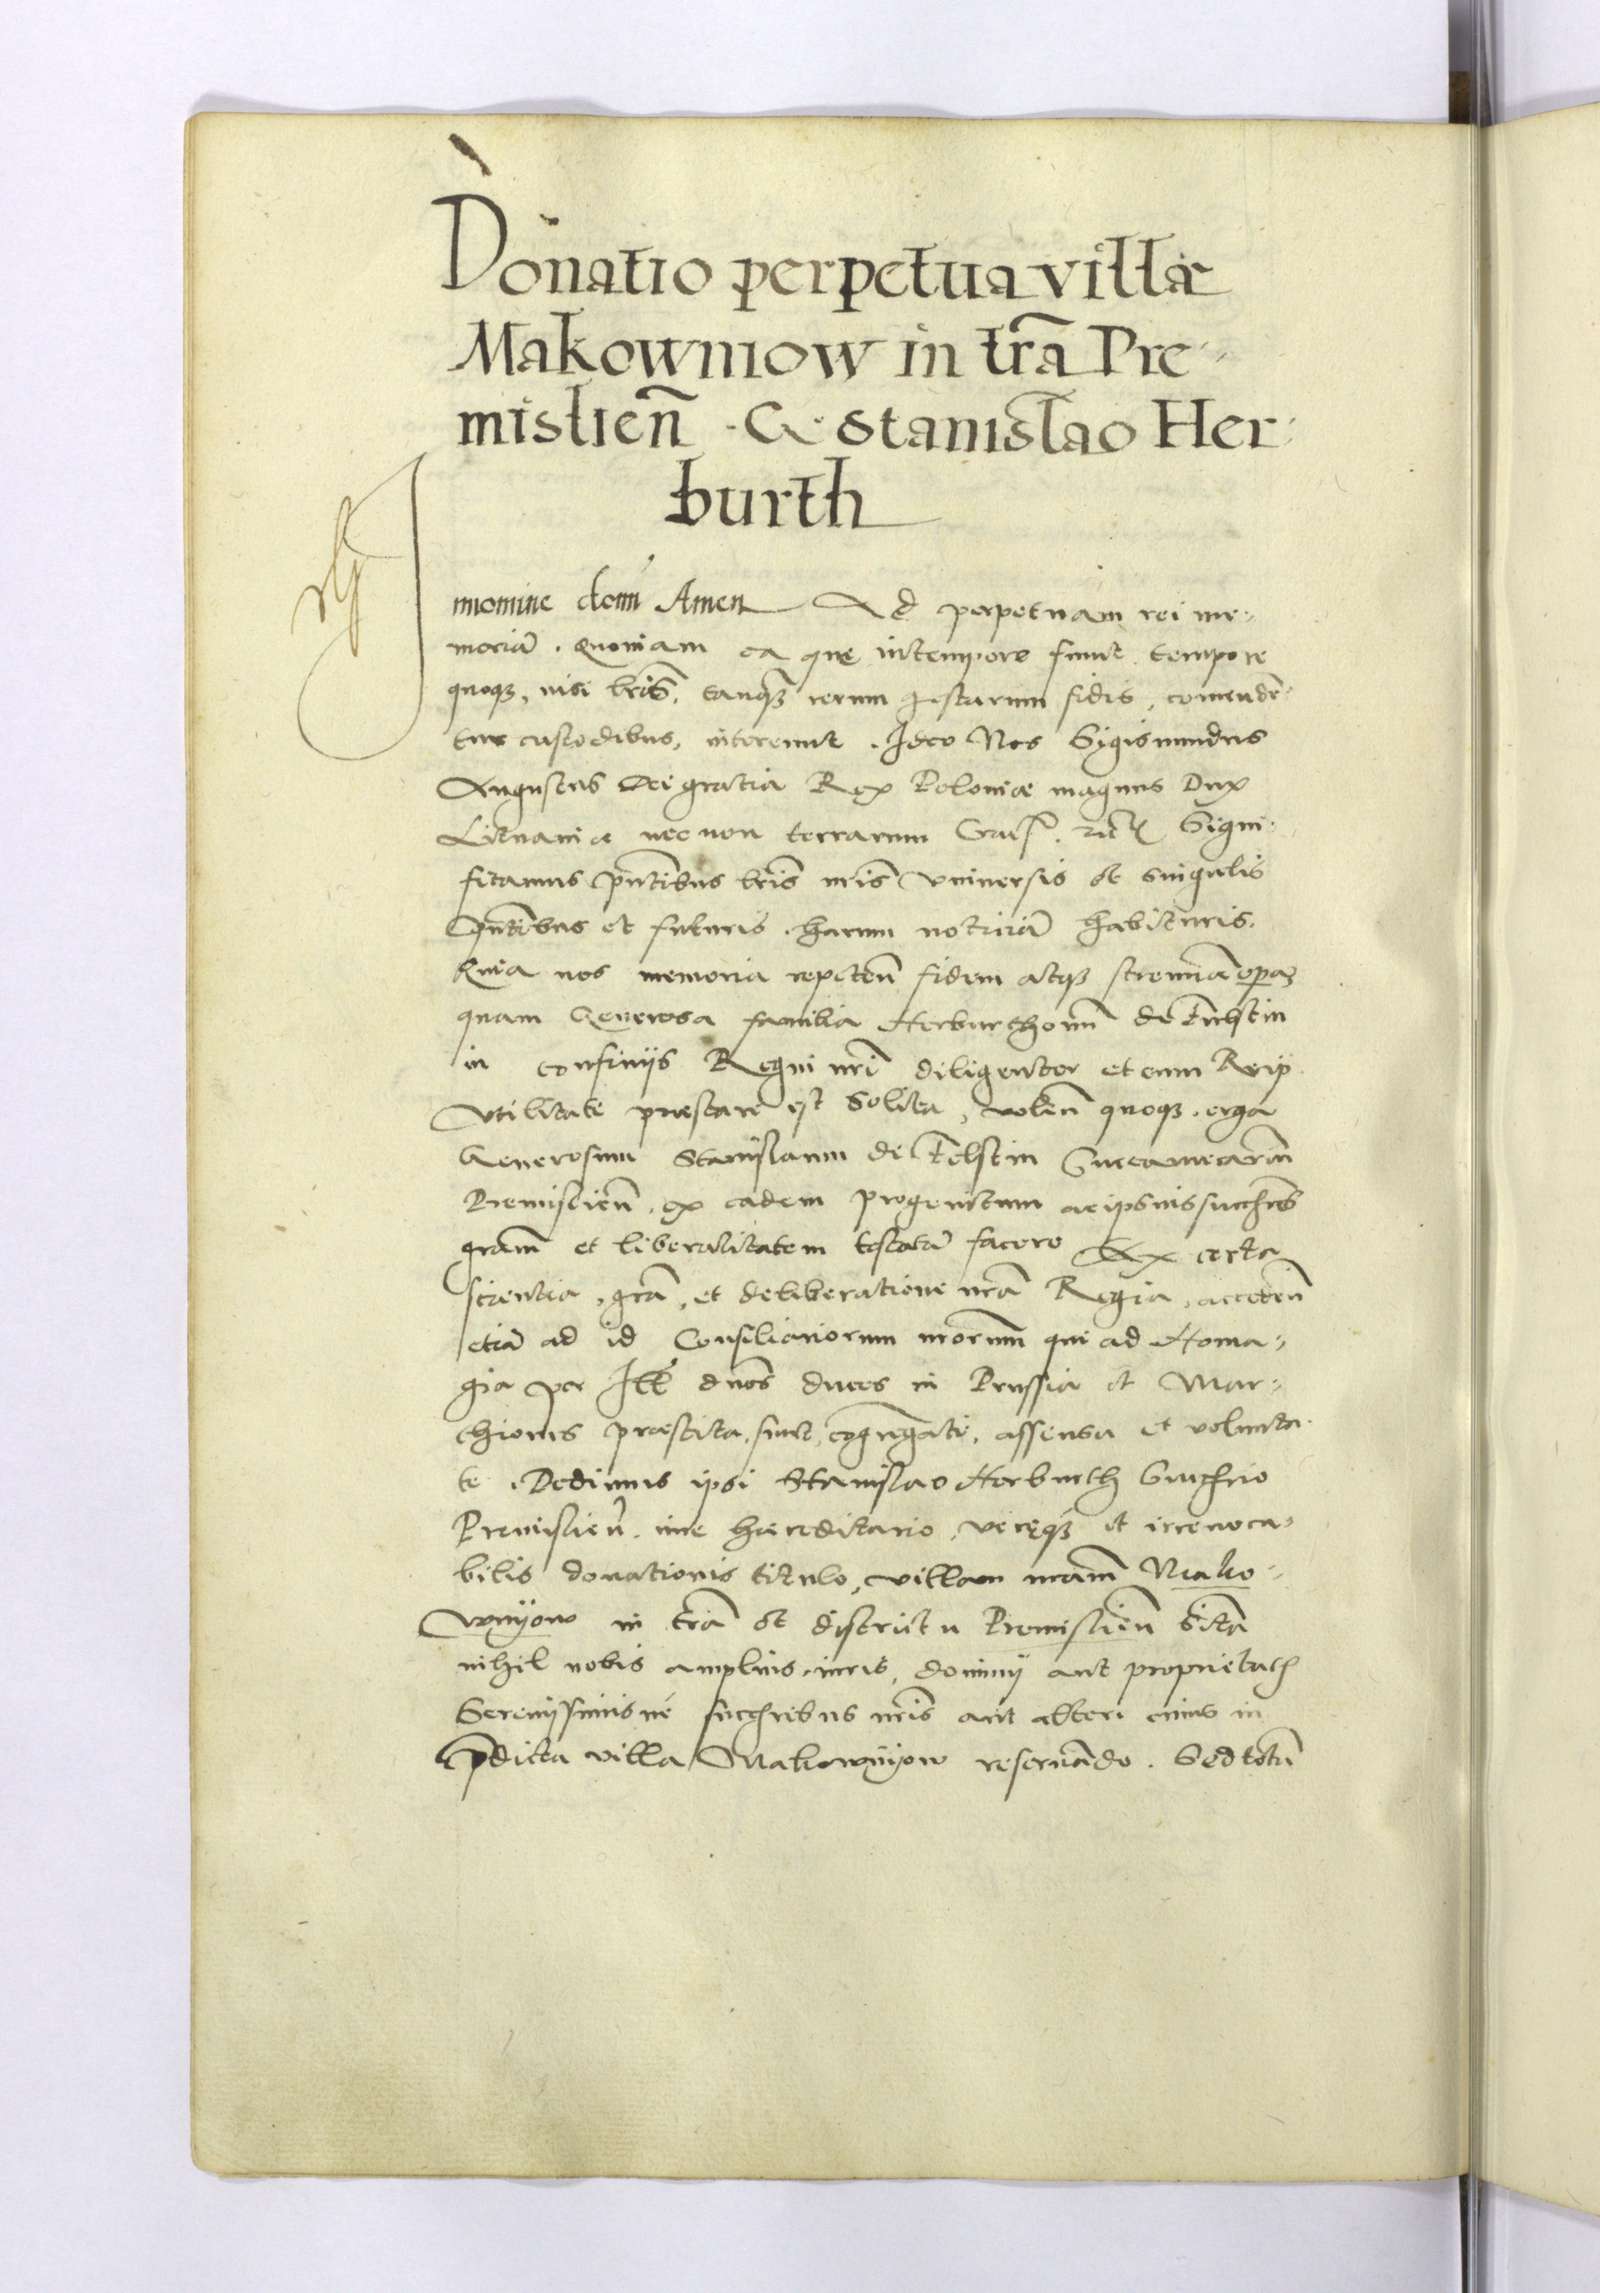 Donatio perpetua villæ
Makowniow in trã Pre-
mislien̄ G Stanislao Her-
burth
In nomine domi Amen Ad perpetuam rei me-
moriã. Quoniam ea que in tempore fiunt tempore
quoq3, nisi lr̄is, tanq3 rerum gestarum fidis, comendẽ-
tur custodibus, intereunt. Ideo Nos Sigismundus
Augustus Dei gratia Rex Poloniæ magnus Dux
Lituaniæ nec non terrarum Signi-
ficamus pñtibus lr̄is nr̄is vniversis et singulis
pñtibus et futuris harum notitiã habituris.
Quia nos memoria repeten̄ fidem atq3 strenuã operã
quam Generosa familia Herburthorum de Fulstin
in confinijs Regni nr̄i diligenter et cum Reip.
vtilitate præstare est solita, volen̄ quoq3 erga
Generosum Stanislaum de Felstin Succamerariũ
Premislien̄, ex eadem progenitum ac ipsius succr̄es
gram̄ et liberalitatem testatã facere Ex certa
scientia, grã, et deliberatione nr̄a Regia, acceden̄
etiã ad id Consiliariorum nr̄orum qui ad Homa-
gia per Ill dños duces in Prussia et Mar-
chiones præstita sunt, cõgregati, assensu et volunta-
te. Dedimus ipsi Stanislao Herburth Succr̄io
Premislien̄. iure hæreditario, veręq3 et irreuoca-
bilis donationis titulo, villam nr̄am Mako-
wnyow in trã et districtu Premislien̄ sitã
nihil nobis amplius iuris, dominij aut proprietatis
Serenissimisue succr̄ibus nr̄is aut alteri cuius in
p̄dicta villa Makownyow reseruãdo. Sed totũ